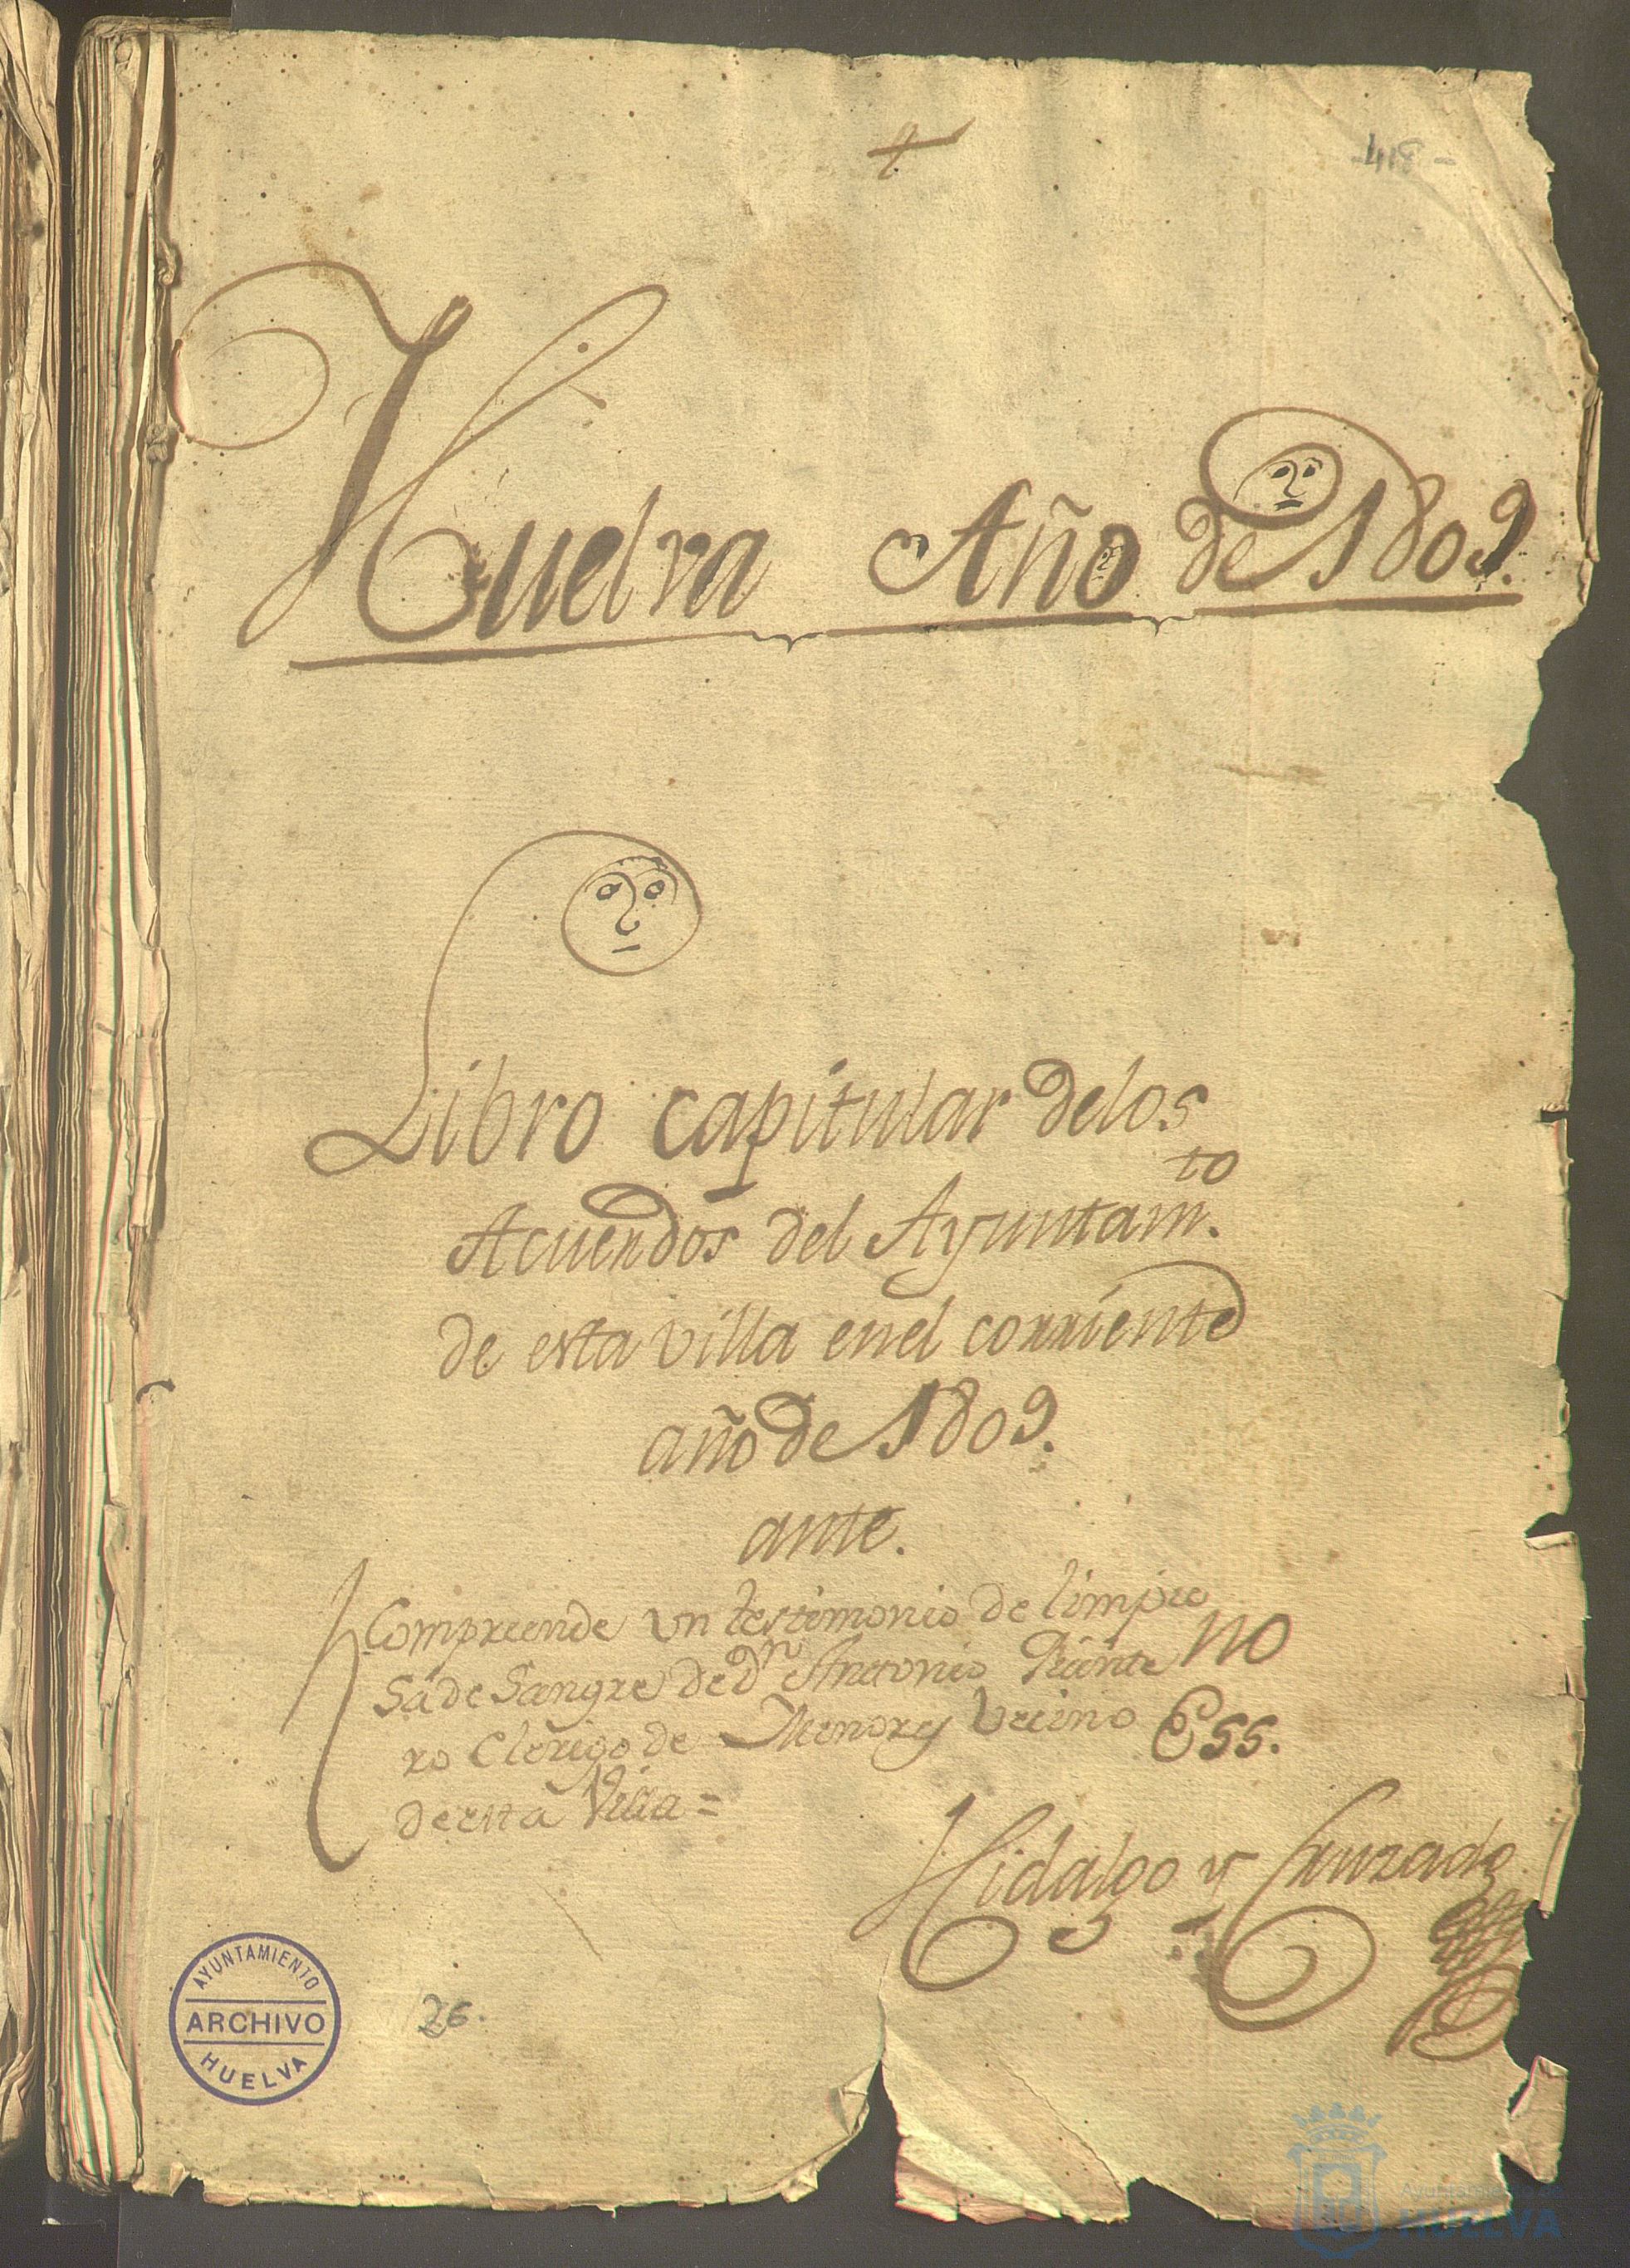 - 418 -
Huelva Año de 1809.
Libro capitular delos
Acuerdos del Ayuntam.to
de esta villa enel corriente
año de 1809.
ante.
Compreende vn testimonio de limpie
sa de Sangre de Dn Antonio
ro Clerigo de Menores Vecino
de esta Villa =
no
Ess.
Hidalgo y Cruzado
AYUNTAMIENTO
ARCHIVO
HUELVA
26.
Ayuntamiento de
HUELVA